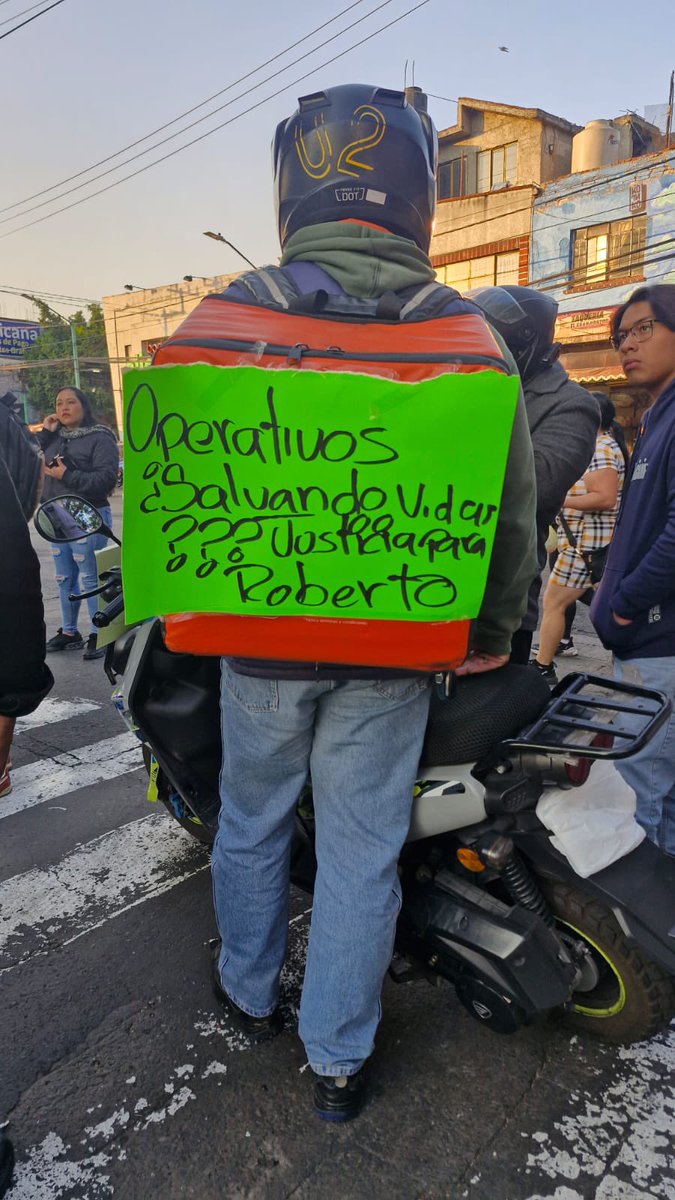 U2
DOT
Operativos
¿Salvando Vidas
??? Justicia para
Roberto
icana